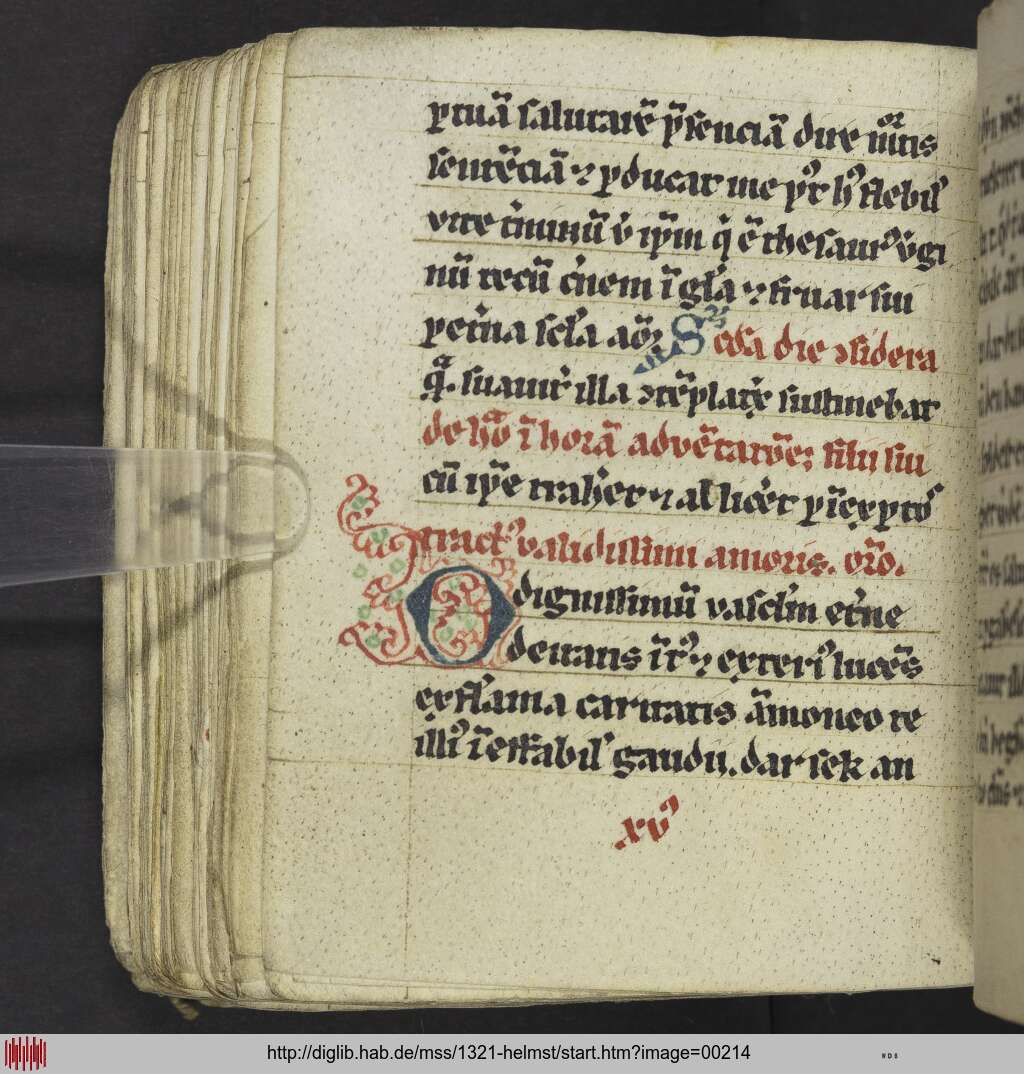 ꝑ tuā salutarē p̄senciā dire mor̄tis
sentēciā ⁊ ꝑducat me pꝰt hꝰ flebilꝭ
vite t̓minū v̓ ip̄m q̓ ē thesaurꝰ v̓gi
nū tecū c̓nem ī gl̓a ⁊ fruar siń
ꝑ et̓na scl̓a Scd̓a die ꝯsidera
qͣ. suauit̓ illa ꝯtēplat̓ sustinebat
de ī horā advētatōe filii sui
cū ip̄e trah̓et ⁊ alliceret
tractꝰ validissimi amoris. or̄o.
O dignissimū vascl̓m et̓ne
deitatis īt̓ꝰ ⁊ exterꝰ lucēs
ex flāma caritatis āmoneo te
illiꝰ īeffabilꝭ gaudii. dar sek an
xvꝰ
http://diglib.hab.de/mss/1321-helmst/start.htm?image=00214